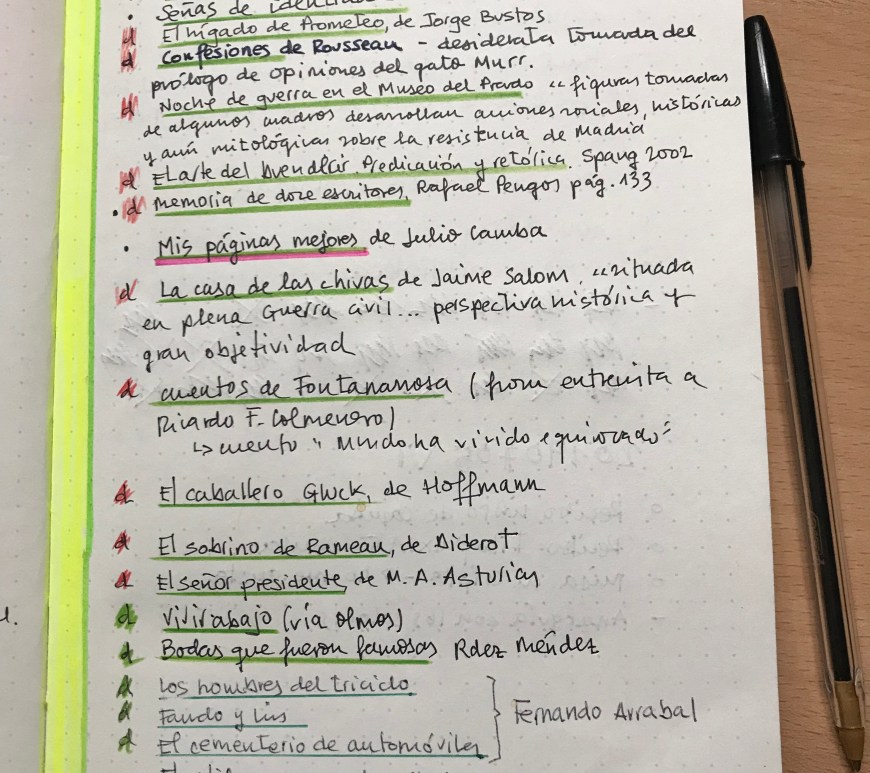 • Señas de identidad
d El hígado de Prometeo, de Jorge Bustos
d Confesiones de Rousseau – desiderata tomada del
prólogo de opiniones del gato Murr.
d Noche de guerra en el Museo del Prado "figuras tomadas
de algunos cuadros desarrollan acciones sociales, históricas
y aún mitológicas sobre la resistencia de Madrid
d El arte del buen decir. Predicación y retórica. Spang 2002
• d Memoria de doze escritores, Rafael pág. 133
• Mis páginas mejores de Julio Camba
d La casa de las chivas de Jaime Salom, "situada
en plena Guerra civil... perspectiva histórica y
gran objetividad
d cuentos de Fontanarrosa (from entrevista a
Ricardo F. Colmenero)
↳ cuento "Mundo ha vivido equivocado"
d El caballero Gluck, de Hoffmann
d El sobrino de Rameau, de Diderot
d El señor presidente, de M. A. Asturias
d Vivir abajo (vía Olmos)
d Bodas que fueron famosas Rdez Méndez
d Los hombres del triciclo
d Fando y Lis } Fernando Arrabal
d El cementerio de automóviles